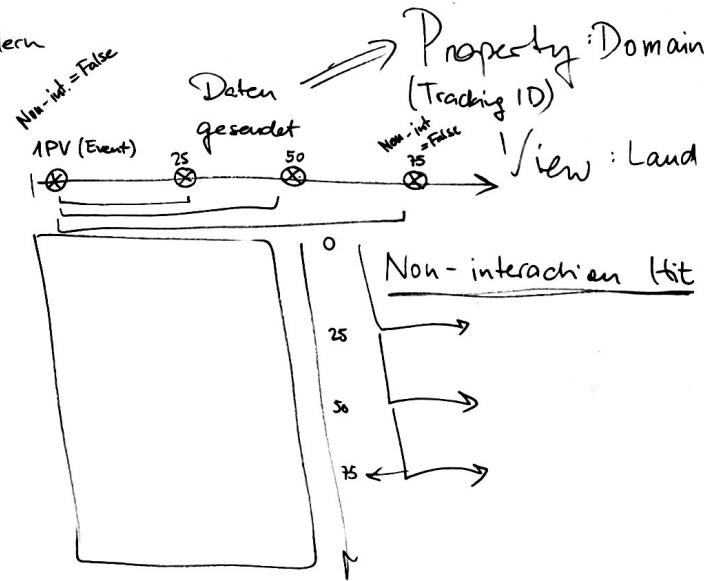 Non-int. = False
Daten
gesendet
Property : Domain
(Tracking ID)
View : Land
1PV (Event)
25
50
Non-int
= False
75
0
Non-interaction Hit
25
50
75